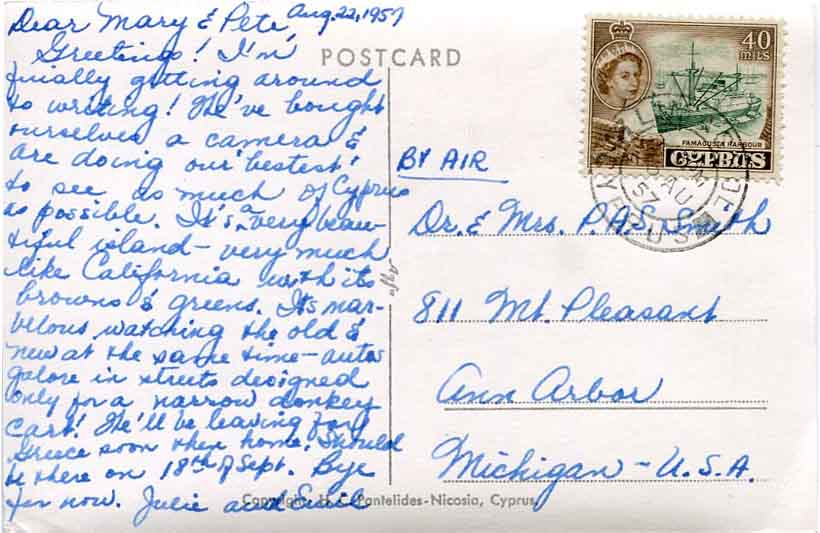 Aug. 22, 1957
Dear Mary & Pete,
Greetings! I'm
finally getting around
to writing! We've bought
ourselves a camera &
are doing our 'bestest'
to see as much of Cyprus
as possible. It's a very beau-
tiful island - very much
like California with its
browns & greens. Its mar-
velous watching the old &
new at the same time - autos
galore in streets designed
only for a narrow donkey
cart! We'll be leaving for
Greece soon then home. Should
be there on 18th of Sept. Bye
for now. Julie and Emil
POSTCARD
40
MILS
FAMAGUSTA HARBOUR
CYPRUS
AU
57
CYPRUS
BY AIR
Dr. & Mrs. P.A.S. Smith
811 Mt. Pleasant
Ann Arbor
Michigan - U.S.A.
Copyright, H. C. Pantelides-Nicosia, Cyprus.